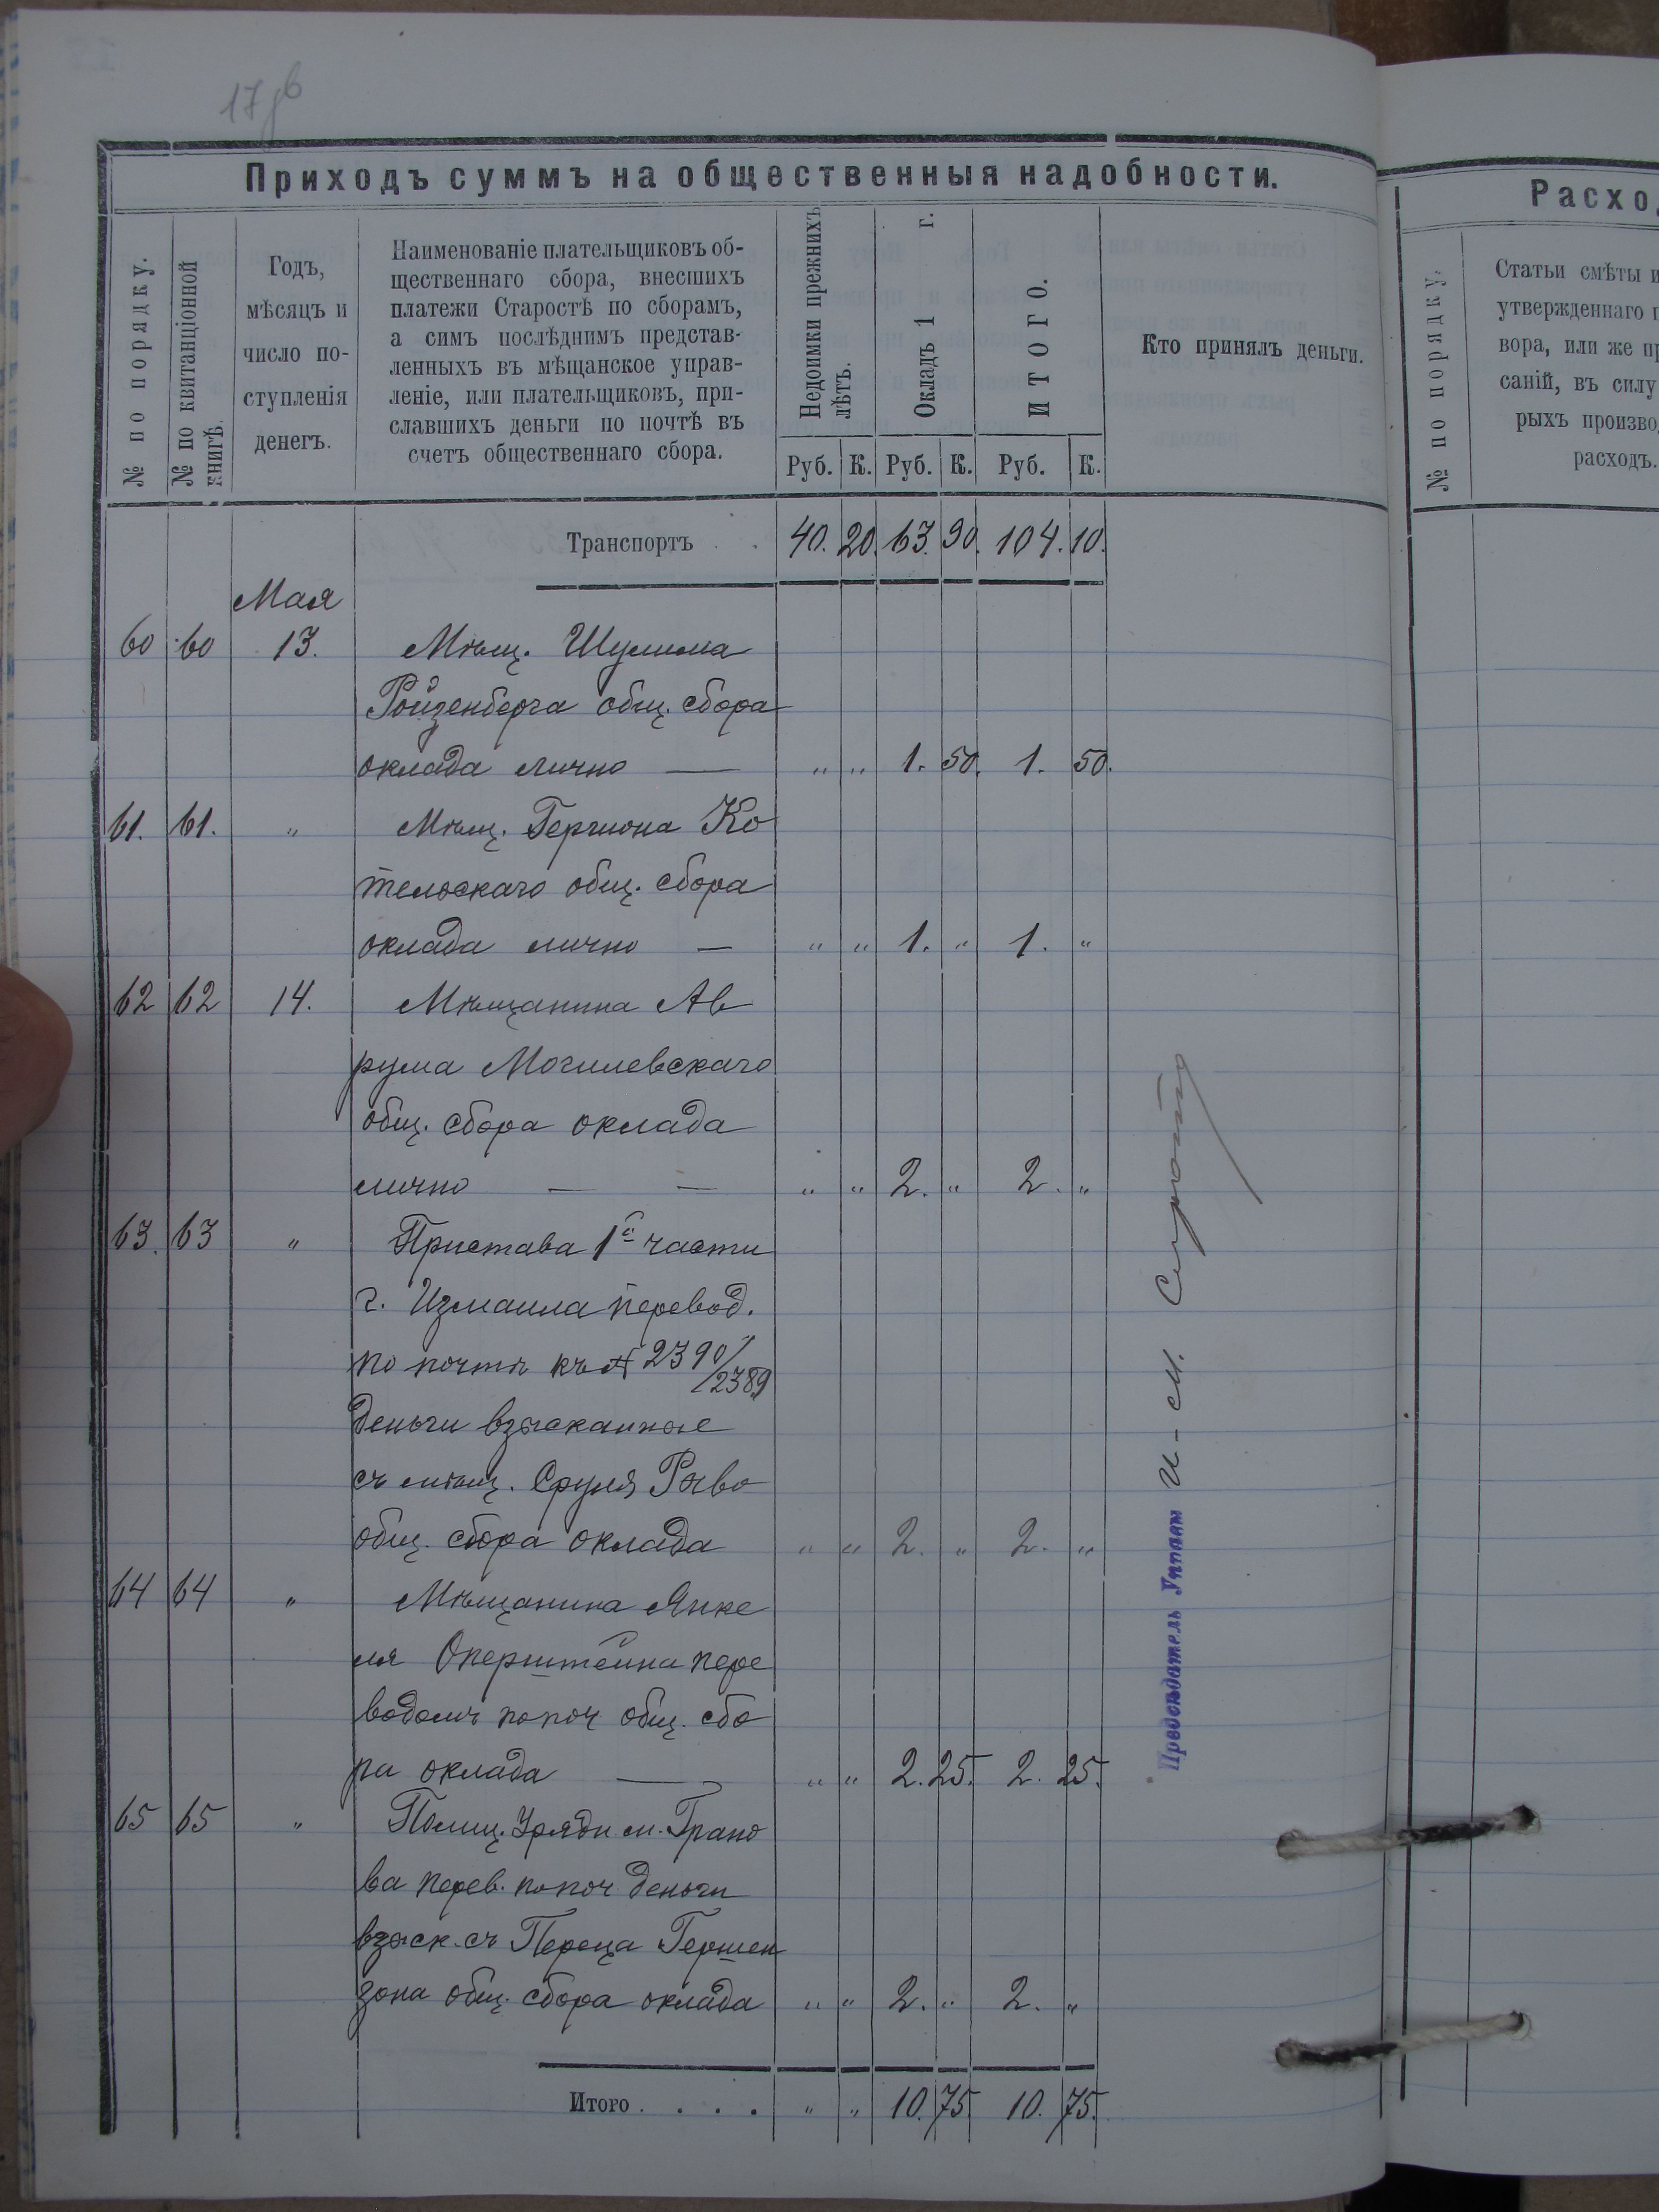 17
Приходъ суммъ на общественныя надобности.
№ по порядку.
№ по квитанціонной
книгѣ.
Годъ,
мѣсяцъ и
число по-
ступленія
денегъ.
Наименованіе плательщиковъ об-
щественнаго сбора, внесшихъ
платежи Старостѣ по сборамъ,
а симъ послѣднимъ представ-
ленныхъ въ мѣщанское управ-
леніе, или плательщиковъ, при-
славшихъ деньги по почтѣ въ
счетъ общественнаго сбора.
Недоимки прежнихъ
лѣтъ.
Окладъ 1 г.
ИТОГО.
Руб. К. Руб. К. Руб. К.
Кто принялъ деньги.
Транспортъ . . 40. 20. 63. 90. 104. 10.
Мая
60 60 13. Мѣщ. Шулима
Ройзенберга общ. сбора
оклада лично — " " 1. 50. 1. 50.
61. 61. " Мѣщ. Гершона Ко
тельскаго общ. сбора
оклада лично — " " 1. " 1. "
62 62 14. Мѣщанина Ав
рума Могилевскаго
общ. сбора оклада
лично — — " " 2. " 2. "
63. 63 " Пристава 1й части
г. Измаила перевод.
по почтѣ къ № 2390/
/2389
деньги взысканные
съ мѣщ. Сруля
общ. сбора оклада " " 2. " 2. "
64 64 " Мѣщанина Янке
ля Оперштейна пере
водомъ по поч общ. сбо
ра оклада — " " 2. 25. 2. 25.
65 65 " Полиц. Урядн м. Грано
ва перев. по поч деньги
взыск. съ Переца Гершен
зона общ. сбора оклада " " 2. " 2. "
Итого . . . . " " 10. 75. 10. 75.
Предсѣдатель Управы И-М.
Расхо
№ по порядку.
Статьи смѣты и
утвержденнаго п
вора, или же пр
саній, въ силу
рыхъ произво
расходъ.